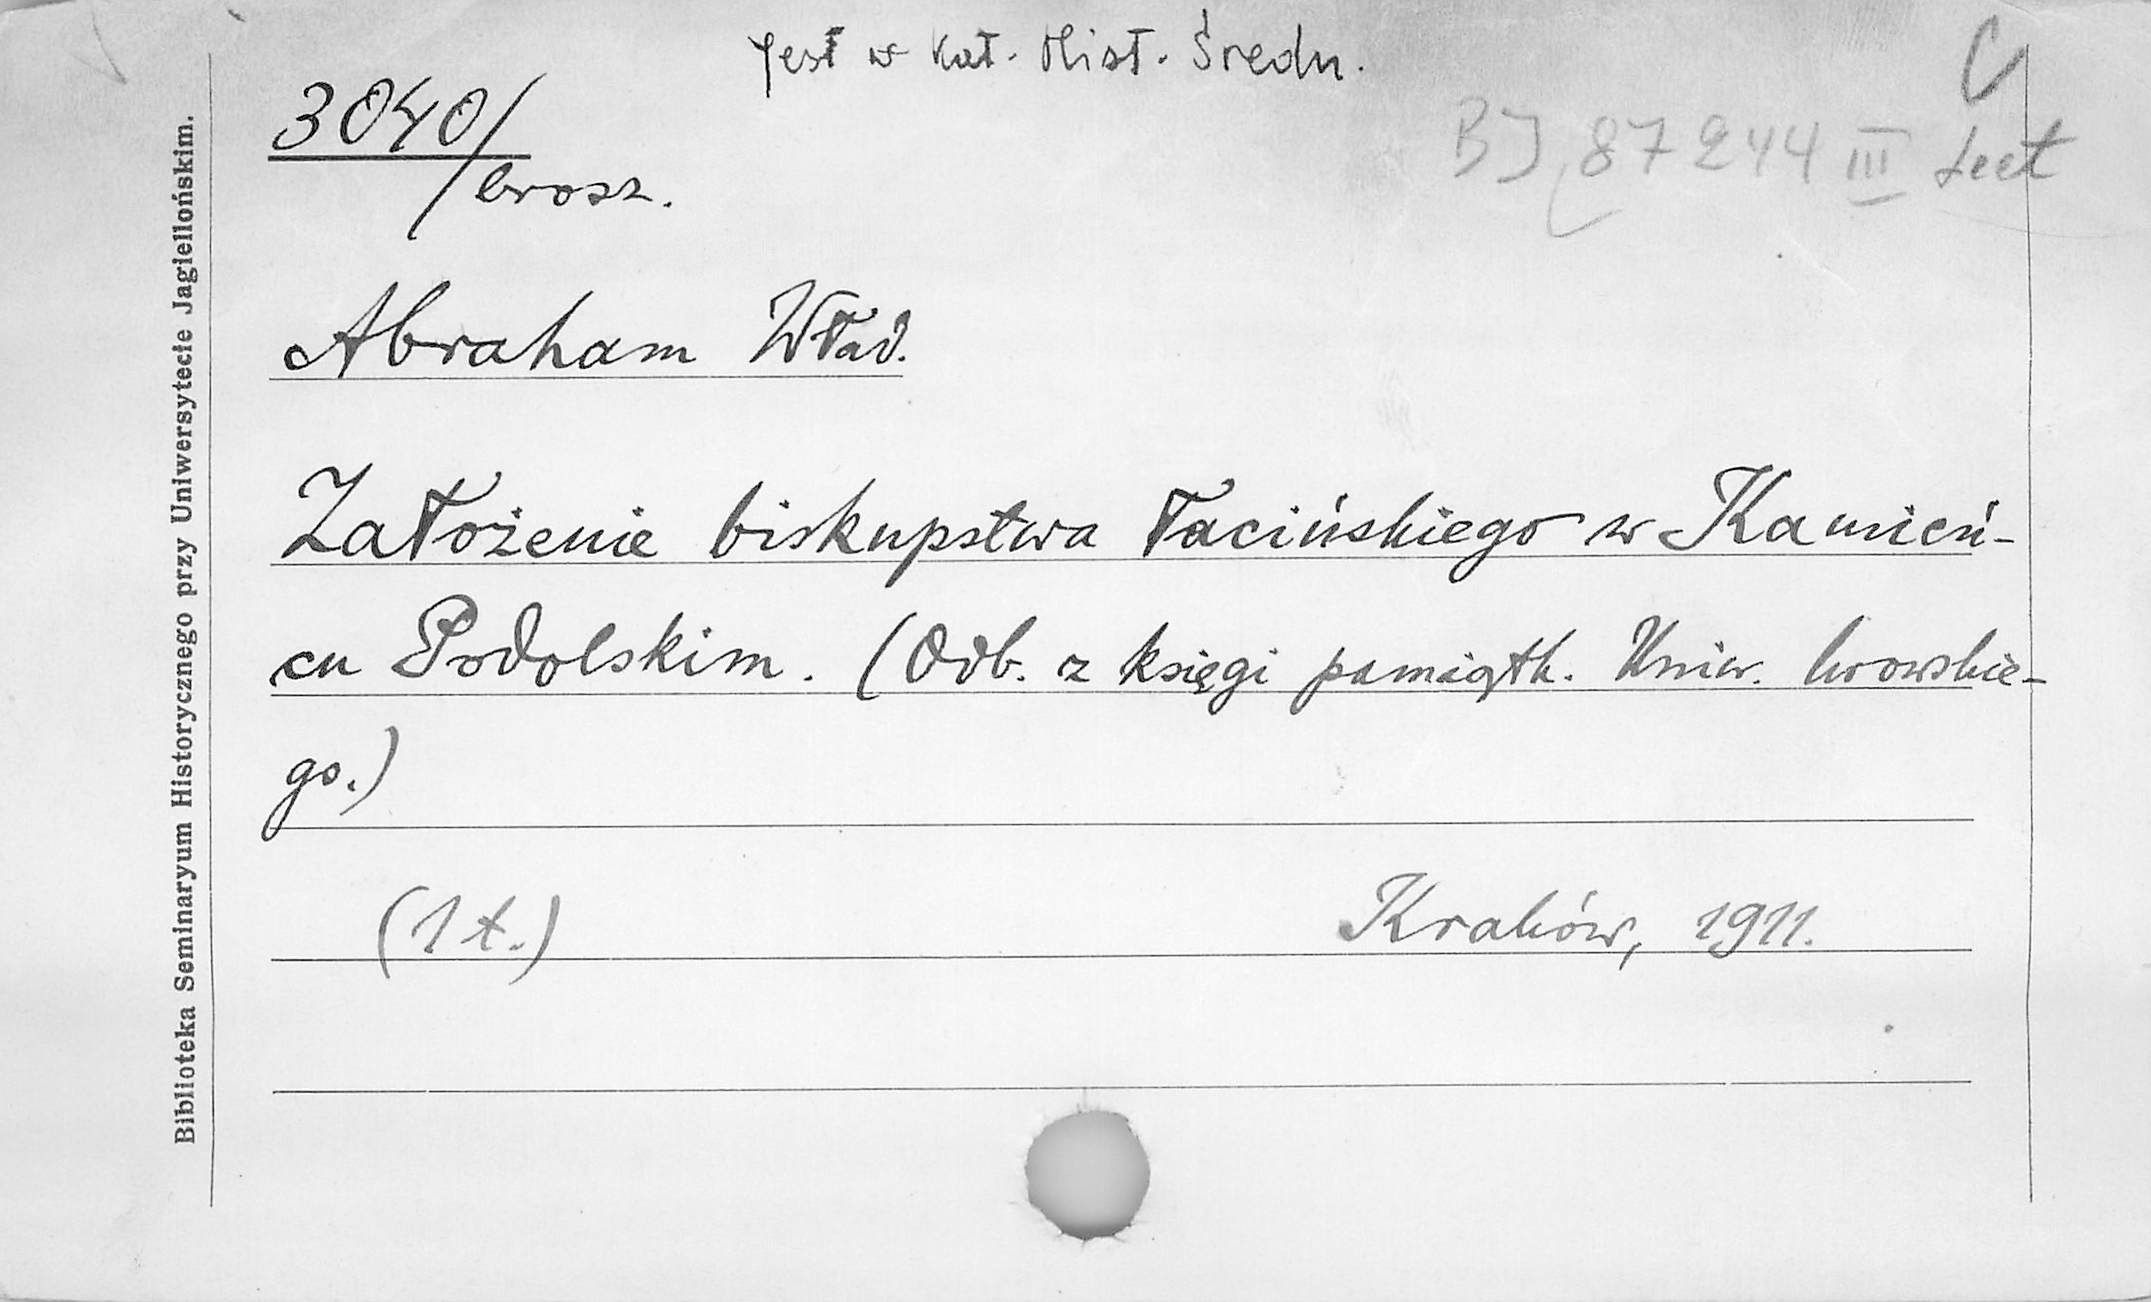 Jest w Kat. Hist. Średn.
3040/brosz.
BJ 87244 III
Abraham Wład.
Założenie biskupstwa łacińskiego w Kamień-
cu Podolskim. (Odb. z księgi pamiątk. Uniw. lwowskie-
go.)
(1 t.)
Kraków, 1911.
Biblioteka Seminaryum Historycznego przy Uniwersytecie Jagiellońskim.